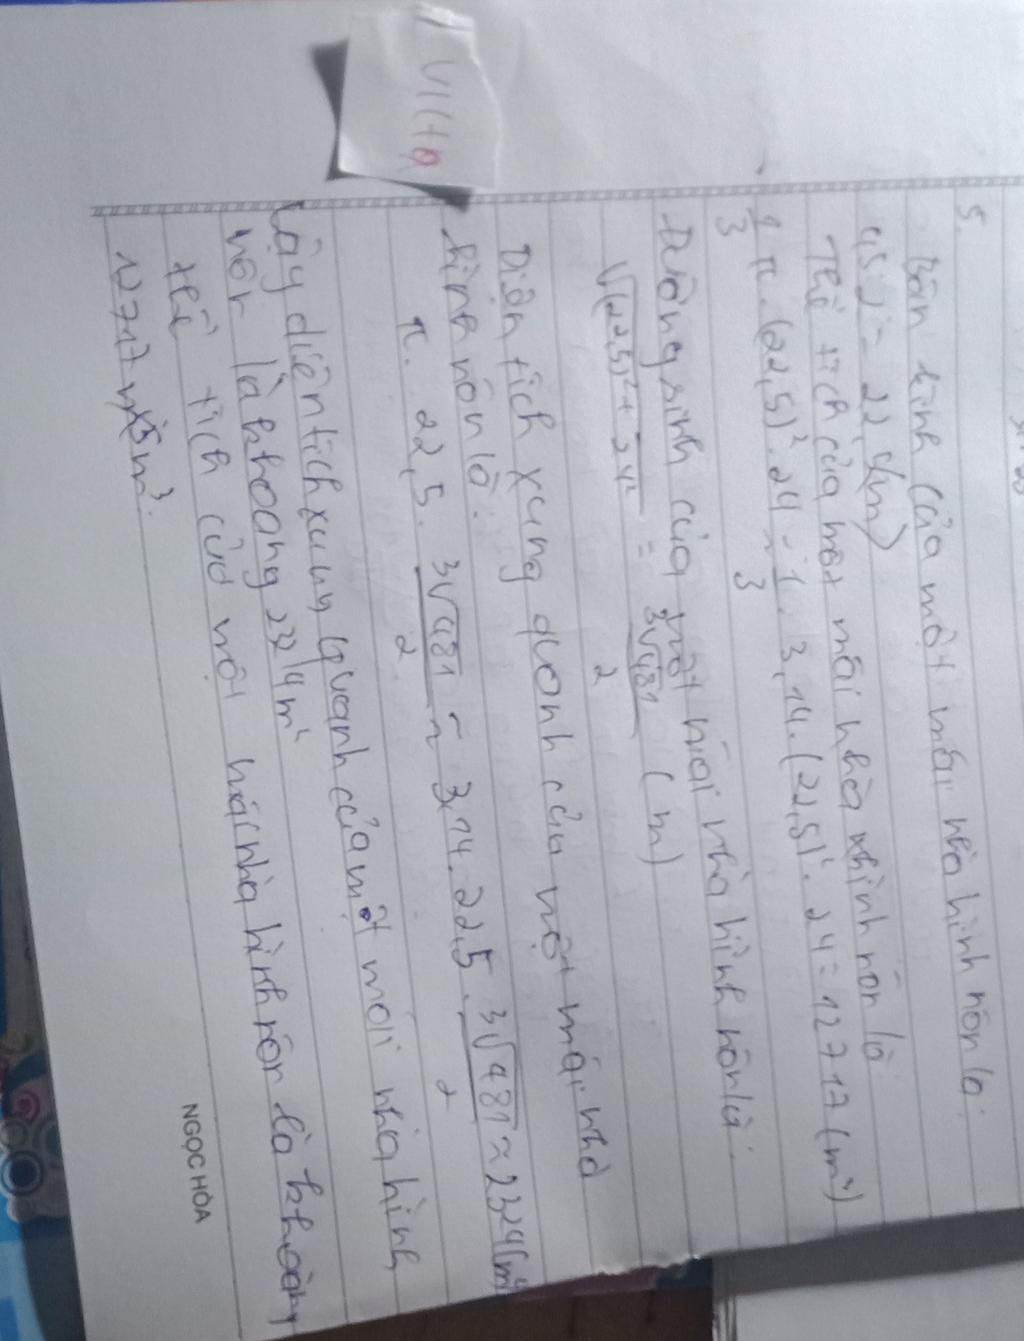 5.
Bán kính của một mái nhà hình nón là:
45:2 = 22,5(m)
Thể tích của một mái nhà hình nón là
1/3 π.(22,5)².24 ≈ 1/3. 3,14.(22,5)².24 = 12717(m³)
Đường sinh của một mái nhà hình nón là:
√(22,5)²+24² = 3√481/2 (m)
Diện tích xung quanh của một mái nhà
hình nón là:
π. 22,5. 3√481/2 ≈ 3,14.22,5. 3√481/2 ≈ 2324(m²)
Vậy diện tích xung quanh của một mái nhà hình
nón là khoảng 2324m²
thể tích của một mái nhà hình nón là khoảng
12717 m³.
NGỌC HÒA